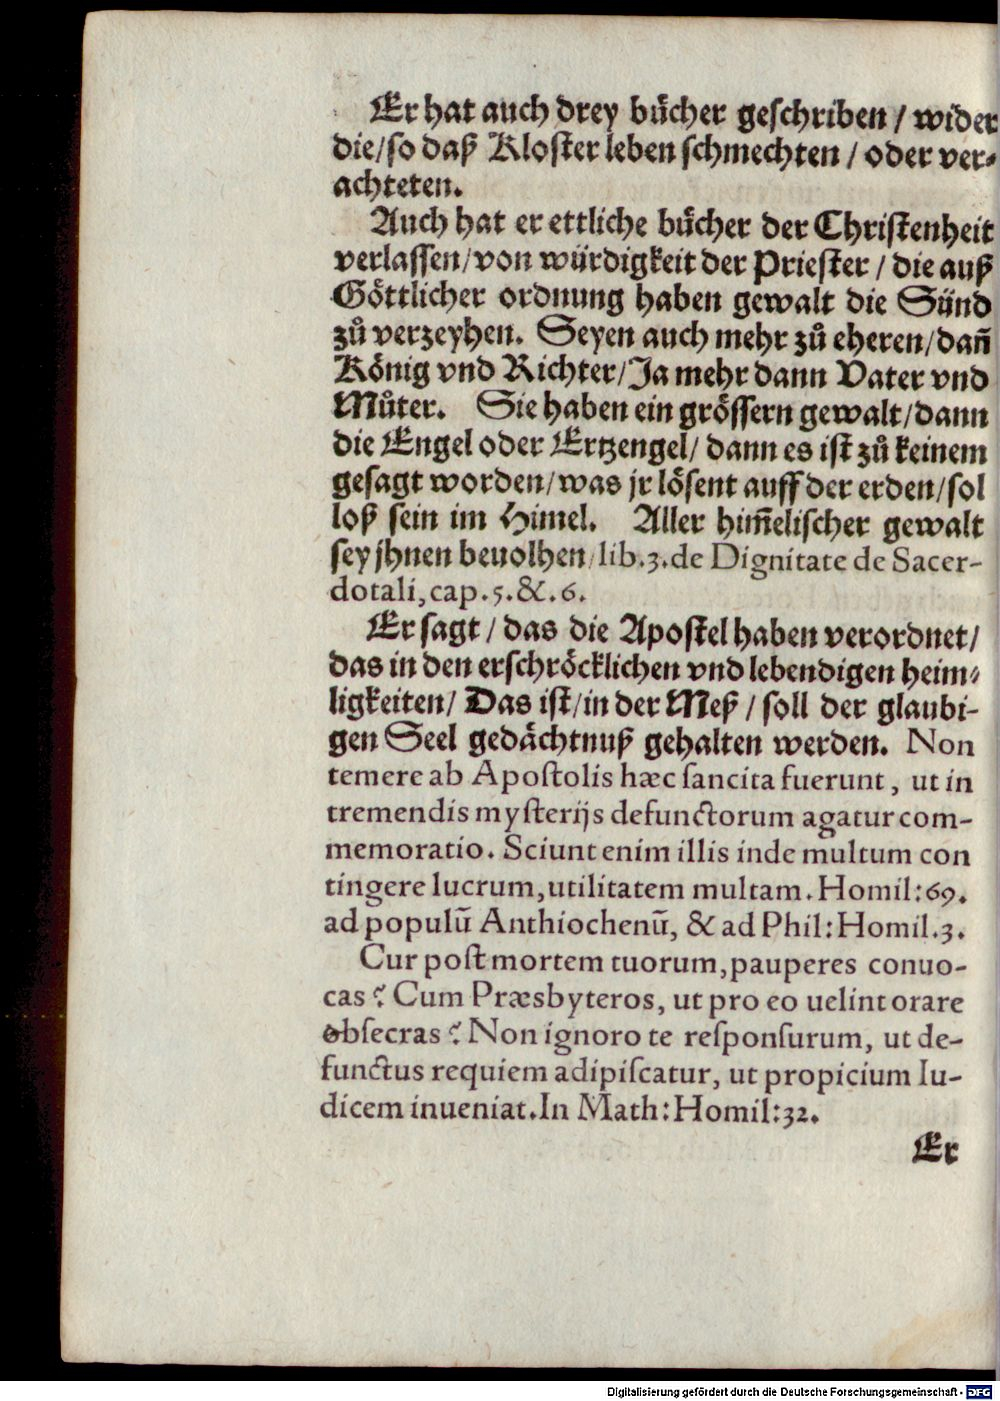 Er hat auch drey bücher geschriben / wider
die/so daß Kloster leben schmechten / oder ver⸗
achteten.
Auch hat er ettliche bücher der Christenheit
verlassen/von würdigkeit der Priester / die auß
Göttlicher ordnung haben gewalt die Sünd
zů verzeyhen. Seyen auch mehr zů eheren/dañ
König vnd Richter/Ja mehr dann Vater vnd
Můter. Sie haben ein grössern gewalt/dann
die Engel oder Ertzengel/ dann es ist zů keinem
gesagt worden/was jr lösent auff der erden/sol
loß sein im Himel. Aller him̃elischer gewalt
sey jhnen beuolhen/lib.3.de Dignitate de Sacer-
dotali,cap.5.&.6.
Er sagt / das die Apostel haben verordnet/
das in den erschröcklichen vnd lebendigen heim⸗
ligkeiten/ Das ist/in der Meß / soll der glaubi-
gen Seel gedächtnuß gehalten werden. Non
temere ab Apostolis hæc sancita fuerunt, ut in
tremendis mysterijs defunctorum agatur com-
memoratio. Sciunt enim illis inde multum con
tingere lucrum,utilitatem multam.Homil:69.
ad populũ Anthiochenũ, & ad Phil:Homil.3.
Cur post mortem tuorum,pauperes conuo-
cas? Cum Præsbyteros, ut pro eo uelint orare
obsecras? Non ignoro te responsurum, ut de-
functus requiem adipiscatur, ut propicium Iu-
dicem inueniat.In Math:Homil:32.
Er
Digitalisierung gefördert durch die Deutsche Forschungsgemeinschaft - DFG